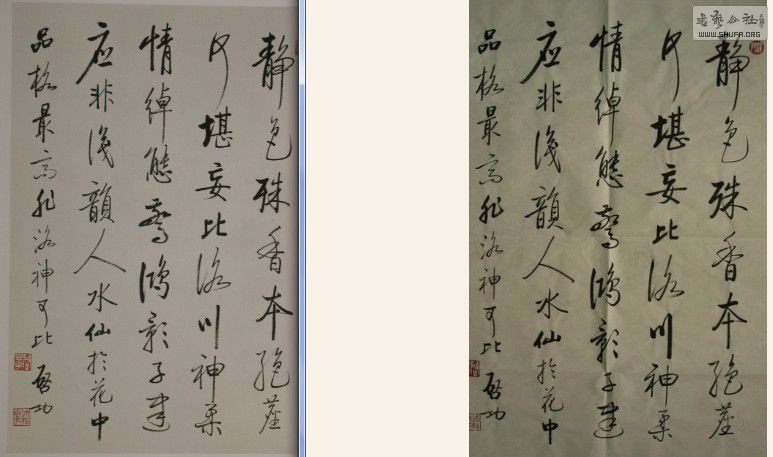 静色殊香本絕塵
何堪妄比洛川神柔
情綽態驚鴻影子建
应非淺韻人水仙於花中
品格最高非洛神可比 啓功
书艺公社
WWW.SHUFA.ORG
静色殊香本絕塵
何堪妄比洛川神柔
情綽態驚鴻影子建
应非淺韻人水仙於花中
品格最高非洛神可比 啓功